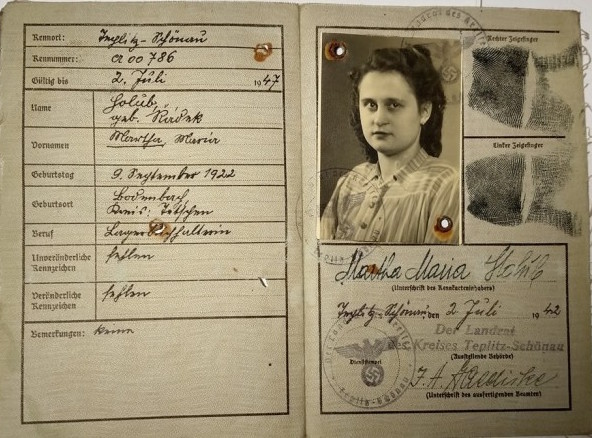 Kennort: Teplitz-Schönau
Kennummer: A 00786
Gültig bis 2. Juli 1947
Name Holub,
geb. Rádek
Vornamen Martha, Maria
Geburtstag 9. September 1922
Geburtsort Bodenbach
Kreis: Tetschen
Beruf
Unveränderliche Kennzeichen fehlen
Veränderliche Kennzeichen fehlen
Bemerkungen: keine
Rechter Zeigefinger
Linker Zeigefinger
Martha Maria Holub
(Unterschrift des Kennkarteninhabers)
Teplitz-Schönau den 2. Juli 1942
Der Landrat
des Kreises Teplitz-Schönau
(Ausstellende Behörde)
Dienststempel
J. A.
(Unterschrift des ausfertigenden Beamten)